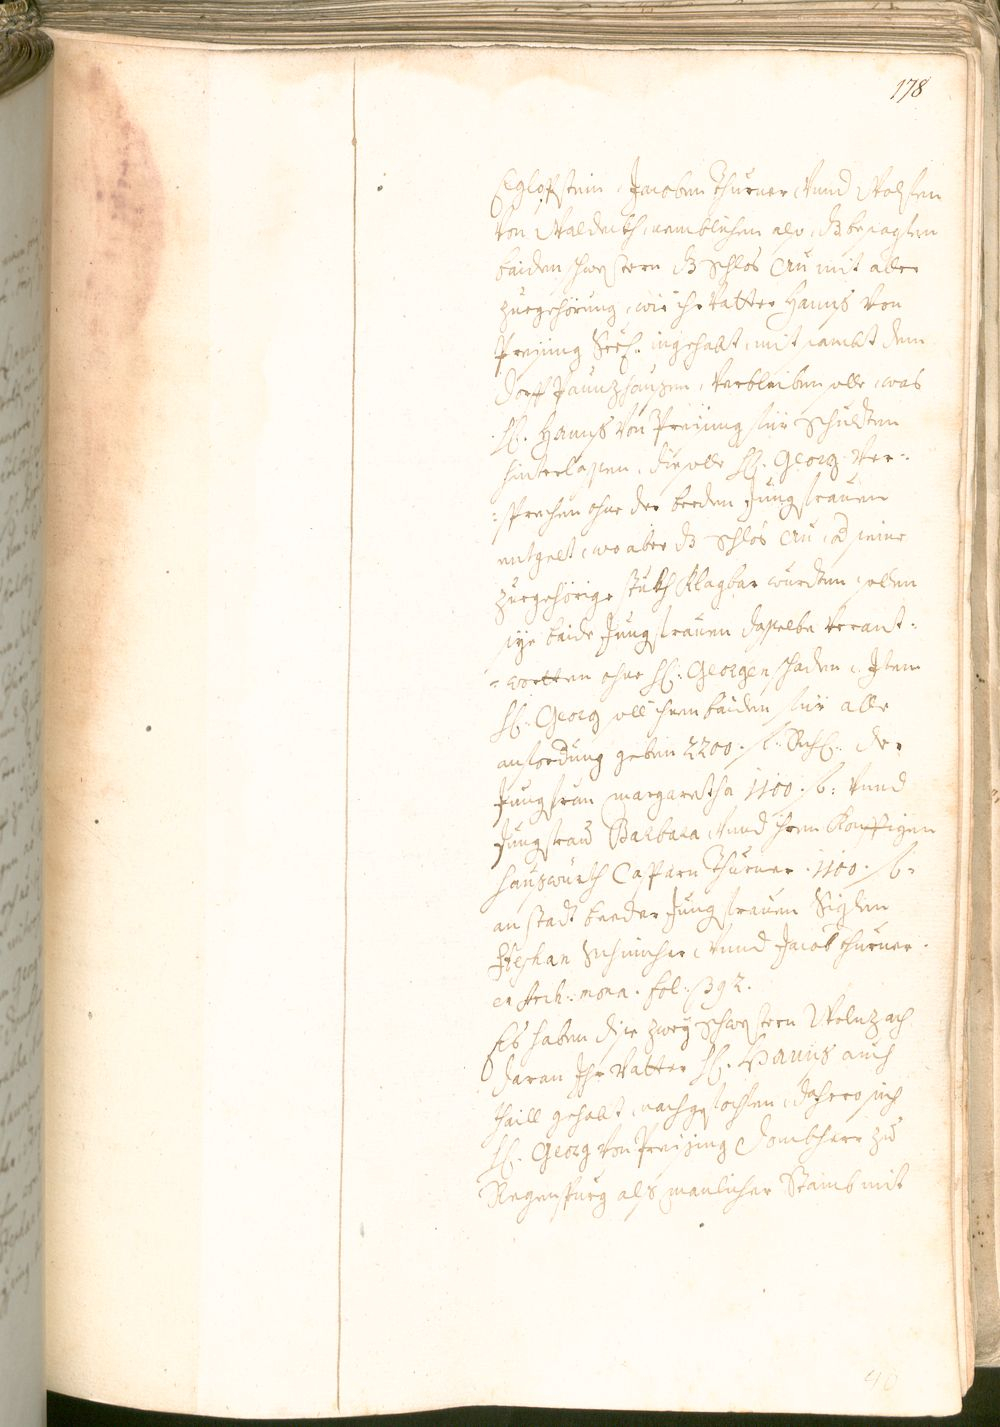 178
Eglofstein, Jacoben Thurner, Vnnd Wolfen
von Waldeckh, nemblichen also, dz besagten
baiden schwestern dz Schlos Au mit aller
zuegehörung, wie ihr Vatter Hanns von
Preysing Seel: ingehabt, mit sambt dem
Dorff Paunzhausen, Verbleiben solle, was
H. Hanns von Preysing für Schulden
hinterlassen, die solle H. Georg Ver-
sprechen ohne der beeden Jungfrauen
entgelt, wo aber dz Schlos Au, od seine
zuegehörige stukh Klagbar wurdten, sollen
sye baide Jungfrauen dasselbe Verant-
wortten ohne H: Georgen schaden, Item
H: Georg soll ihnen baiden für alle
anfordrung geben 2200. f: Rh: der
Jungfrau margaretha 1100. f: Vnnd
Jungfrau Barbara, Vnnd ihrem Konfftigen
hauswürth Caspam Thurner. 1100. f:
an stadt beeder Jungfrauen Siglen
Stephan Schmicher, Vnnd Jacob Thurner.
ex Arch: mona. fol: 392.
Es haben dise zwey Schwestern Wolnzach
daran Ihr Vatter H. Hanns auch
thaill gehabt, nachgesochten, dahero sich
H. Georg von Preysing Dombherr zu
Regenspurg als manlicher Stamb mit